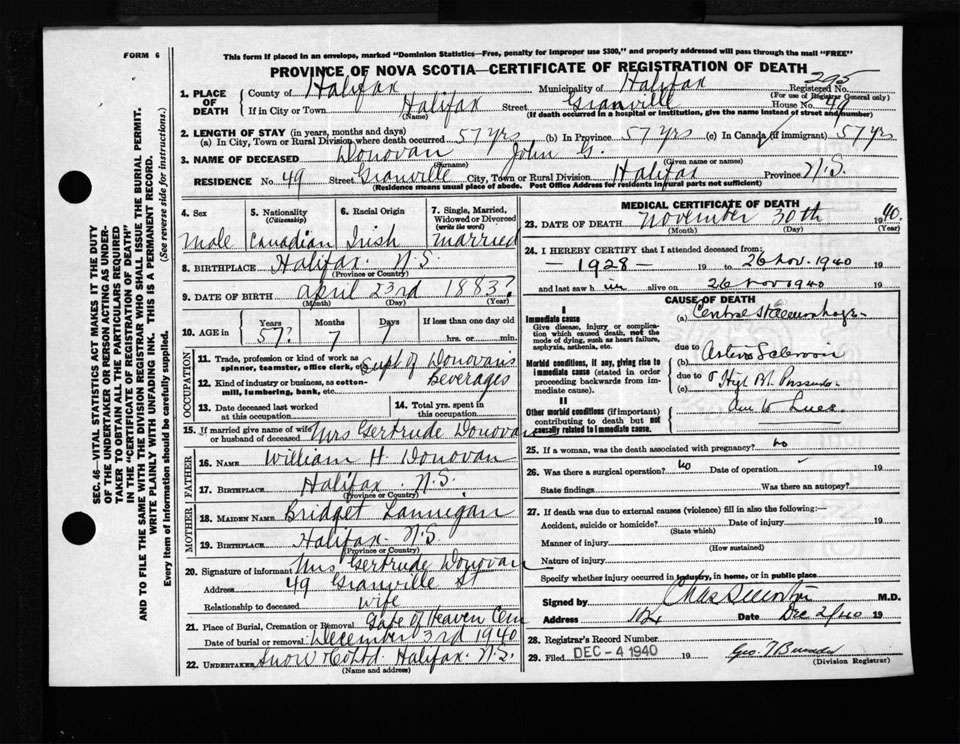 FORM 6
This form if placed in an envelope, marked "Dominion Statistics—Free, penalty for improper use $300," and properly addressed will pass through the mail "FREE"
PROVINCE OF NOVA SCOTIA—CERTIFICATE OF REGISTRATION OF DEATH
295
1. PLACE OF DEATH
County of Halifax Municipality of Halifax Registered No.
(For use of Registrar General only)
If in City or Town Halifax Street Granville House No. 49
(Name) (If death occurred in a hospital or institution, give the name instead of street and number)
2. LENGTH OF STAY (in years, months and days)
(a) In City, Town or Rural Division where death occurred 57 yrs (b) In Province 57 yrs (c) In Canada (if immigrant) 57 yrs
3. NAME OF DECEASED Donovan John G.
(Surname) (Given name or names)
RESIDENCE No. 49 Street Granville City, Town or Rural Division Halifax Province N.S.
(Residence means usual place of abode. Post Office Address for residents in rural parts not sufficient)
4. Sex 5. Nationality (Citizenship) 6. Racial Origin 7. Single, Married, Widowed or Divorced (write the word)
Male Canadian Irish Married
8. BIRTHPLACE Halifax. N.S.
(Province or Country)
9. DATE OF BIRTH April 23rd 1883?
(Month) (Day) (Year)
10. AGE in Years Months Days If less than one day old
57? 7 7 hrs. or min.
OCCUPATION
11. Trade, profession or kind of work as spinner, teamster, office clerk, etc. Supt of Donovan's
12. Kind of industry or business, as cotton-mill, lumbering, bank, etc. Beverages
13. Date deceased last worked at this occupation
14. Total yrs. spent in this occupation
15. If married give name of wife or husband of deceased Mrs Gertrude Donovan
FATHER
16. NAME William H. Donovan
17. BIRTHPLACE Halifax. N.S.
(Province or Country)
MOTHER
18. MAIDEN NAME Bridget Lannigan
19. BIRTHPLACE Halifax. N.S.
(Province or Country)
20. Signature of informant Mrs Gertrude Donovan
Address 49 Granville St
Relationship to deceased wife
21. Place of Burial, Cremation or Removal Gate of Heaven Cem
Date of burial or removal December 3rd 1940
22. UNDERTAKER Snow & Co Ltd. Halifax. N.S.
(Name and address)
MEDICAL CERTIFICATE OF DEATH
23. DATE OF DEATH November 30th 1940.
(Month) (Day) (Year)
24. I HEREBY CERTIFY that I attended deceased from:
— 1928 — 19 to 26 Nov. 1940 19
and last saw him alive on 26 Nov 1940 19
CAUSE OF DEATH
I
Immediate cause
Give disease, injury or complication which caused death, not the mode of dying, such as heart failure, asphyxia, asthenia, etc.
(a) Central Haemorrhage
due to
Morbid conditions, if any, giving rise to immediate cause (stated in order proceeding backwards from immediate cause).
(b)
due to
(c)
II
Other morbid conditions (if important) contributing to death but not causally related to immediate cause.
due to Lues
25. If a woman, was the death associated with pregnancy? no
26. Was there a surgical operation? no Date of operation 19
State findings Was there an autopsy?
27. If death was due to external causes (violence) fill in also the following:—
Accident, suicide or homicide? Date of injury 19
(State which)
Manner of injury
(How sustained)
Nature of injury
Specify whether injury occurred in industry, in home, or in public place
Signed by Chas M.D.
Address Date Dec 2/40 19
28. Registrar's Record Number
29. Filed DEC - 4 1940 19 Geo.
(Division Registrar)
SEC. 46—VITAL STATISTICS ACT MAKES IT THE DUTY
OF THE UNDERTAKER OR PERSON ACTING AS UNDER-
TAKER TO OBTAIN ALL THE PARTICULARS REQUIRED
IN THE "CERTIFICATE OF REGISTRATION OF DEATH"
AND TO FILE THE SAME WITH THE DIVISION REGISTRAR WHO SHALL ISSUE THE BURIAL PERMIT.
WRITE PLAINLY WITH UNFADING INK. THIS IS A PERMANENT RECORD.
Every item of information should be carefully supplied. (See reverse side for instructions.)